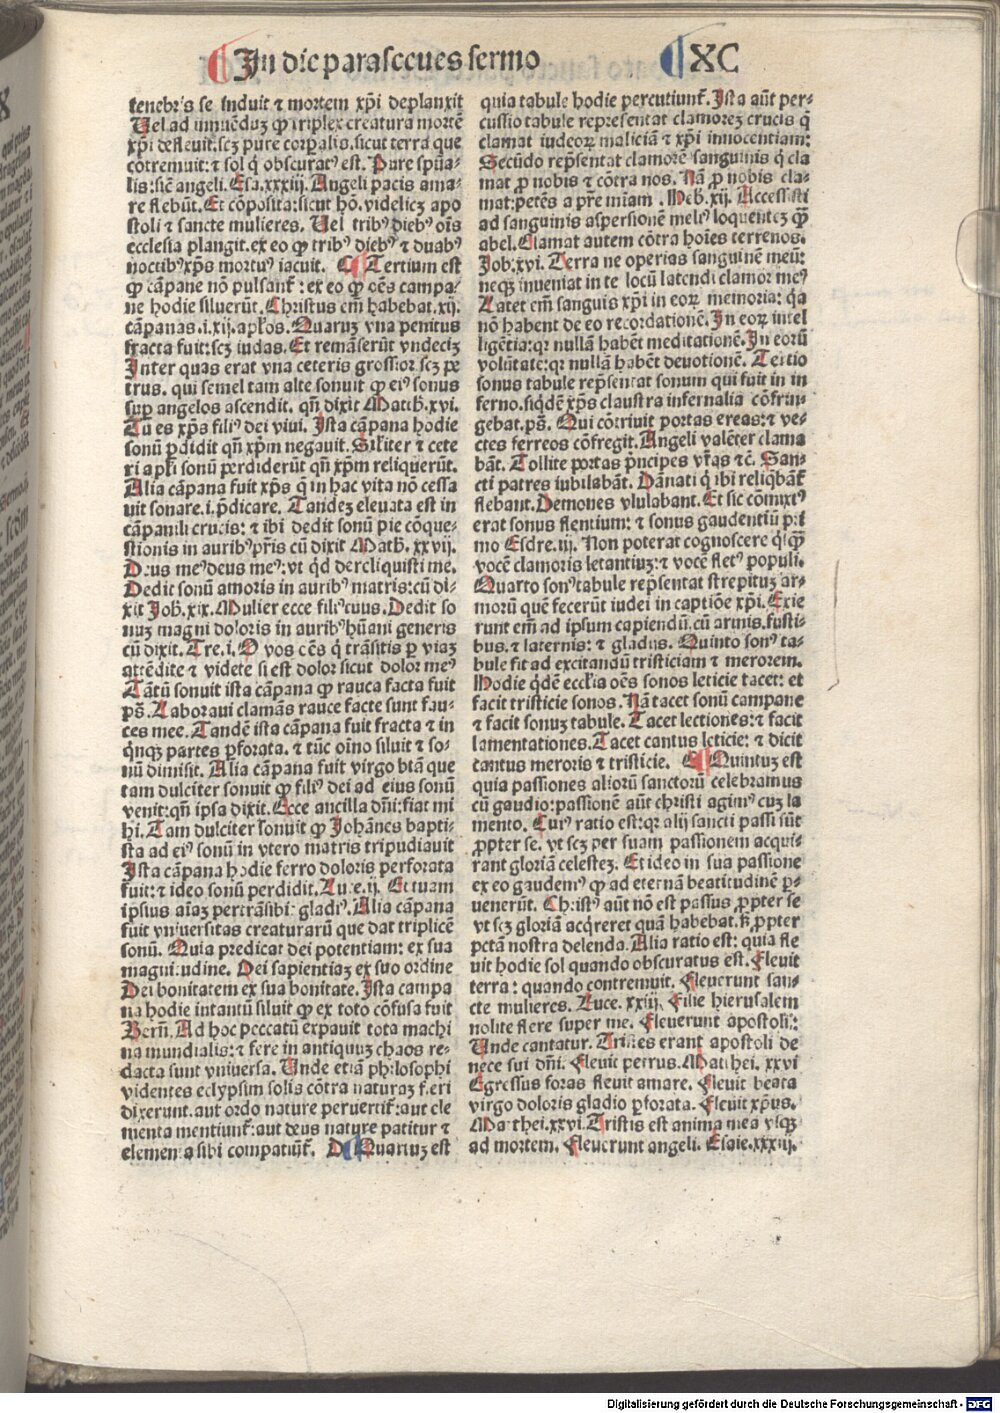 In die parasceues sermo XC
tenebris se induit ⁊ mortem xp̄i deplanxit
Uel ad innuēduꝫ ꝙ triplex creatura mortē
xp̄i defleuit: scꝫ pure corꝑalis. sicut terra que
cōtremuit: ⁊ sol q̇ obscuratꝰ est. Pure spūa-
lis: sic̄ angeli. Esa. xxxiij. Angeli pacis ama-
re flebūt. Et cōposita: sicut hō. videlicꝫ apo
stoli ⁊ sancte mulieres. Uel tribꝰ diebꝰ oīs
ecclesia plangit. ex eo ꝙ tribꝰ diebꝰ ⁊ duabꝰ
noctibꝰ xp̄s mortuꝰ iacuit. C Tertium est
ꝙ cāpane nō pulsant᷑: ex eo ꝙ oēs campa-
ne hodie siluerūt. Christus em̄ habebat. xij.
cāpanas. i. xij. apl̄os. Quaruꝫ vna penitus
fracta fuit: scꝫ iudas. Et remāserūt vndeciꝫ
Inter quas erat vna ceteris grossior scꝫ pe
trus. qui semel tam alte sonuit ꝙ eiꝰ sonus
suꝑ angelos ascendit. qn̄ dixit Matth. xvi.
Tu es xp̄s filiꝰ dei viui. Ista cāpana hodie
sonū ꝑdidit qn̄ xp̄m negauit. Sil̄iter ⁊ cete
ri apl̄i sonū perdiderūt qn̄ xp̄m reliquerūt.
Alia cāpana fuit xp̄s q̇ in hac vita nō cessa
uit sonare. i. p̄dicare. Tandeꝫ eleuata est in
cāpanili crucis: ⁊ ibi dedit sonū pie cōque-
stionis in auribꝰ pr̄is cū dixit Math. xxvij.
Deus meꝰ deus meꝰ: vt qd dereliquisti me.
Dedit sonū amoris in auribꝰ matris: cū di-
xit Joh. xix. Mulier ecce filiꝰ tuus. Dedit so
nuꝫ magni doloris in auribꝰ hūani generis
cū dixit. Tre. i. O vos oēs q̇ trāsitis ꝑ viaꝫ
attēdite ⁊ videte si est dolor sicut dolor meꝰ
Tātū sonuit ista cāpana ꝙ rauca facta fuit
pō. Laboraui clamās rauce facte sunt fau-
ces mee. Tandē ista cāpana fuit fracta ⁊ in
q̇nqꝫ partes ꝑforata. ⁊ tūc oīno siluit ⁊ so-
nū dimisit. Alia cāpana fuit virgo btā que
tam dulciter sonuit ꝙ filiꝰ dei ad eius sonū
venit: qn̄ ipsa dixit. Ecce ancilla dn̄i: fiat mi
hi. Tam dulciter sonuit ꝙ Johānes bapti-
sta ad eiꝰ sonū in vtero matris tripudiauit
Ista cāpana hodie ferro doloris perforata
fuit: ⁊ ideo sonū perdidit. Luce. ij. Et tuam
ipsius aīaꝫ pertrāsibit gladiꝰ. Alia cāpana
fuit vniuersitas creaturarū que dat triplicē
sonū. Quia predicat dei potentiam: ex sua
magnitudine. Dei sapientiaꝫ ex suo ordine
Dei bonitatem ex sua bonitate. Ista campa
na hodie intantū siluit ꝙ ex toto cōfusa fuit
Bern̄. Ad hoc peccatū expauit tota machi
na mundialis: ⁊ fere in antiquuꝫ chaos re-
dacta sunt vniuersa. Unde etiā philosophi
videntes eclypsim solis cōtra naturaꝫ fieri
dixerunt. aut ordo nature peruertit᷑: aut ele
menta mentiunt᷑: aut deus nature patitur ⁊
elementa sibi compatiūt᷑. D Quartuꝫ est
quia tabule hodie percutiunt᷑. Ista aūt per-
cussio tabule representat clamoreꝫ crucis q̄
clamat iudeoꝝ maliciā ⁊ xp̄i innocentiam:
Secūdo rep̄sentat clamorē sanguinis q̇ cla
mat ꝓ nobis ⁊ cōtra nos. Nā ꝓ nobis cla-
mat: petēs a pr̄e miam. Heb. xij. Accessisti
ad sanguinis aspersionē meliꝰ loquenteꝫ ꝙ̄
abel. Clamat autem cōtra hoīes terrenos.
Job. xvi. Terra ne operias sanguinē meū:
neqꝫ inueniat in te locū latendi clamor meꝰ
Latet em̄ sanguis xp̄i in eoꝝ memoria: q̇a
nō habent de eo recordationē. In eoꝝ intel
ligētia: qꝛ nullā habēt meditationē. In eorū
volūtate: qꝛ nullā habēt deuotionē. Tertio
sonus tabule rep̄sentat sonum qui fuit in in
ferno. siq̇dē xp̄s claustra infernalia cōfrin-
gebat. pō. Qui cōtriuit portas ereas: ⁊ ve-
ctes ferreos cōfregit. Angeli valēter clama
bāt. Tollite portas p̄ncipes vr̄as ⁊c̄. San-
cti patres iubilabāt. Dānati q̇ ibi reliq̄bāt᷑
flebant. Demones vlulabant. Et sic cōmixtꝰ
erat sonus flentium: ⁊ sonus gaudentiū pri
mo Esdre. iij. Non poterat cognoscere q̇sqꝫ
vocē clamoris letantiuꝫ: ⁊ vocē fletꝰ populi.
Quarto sonꝰ tabule rep̄sentat strepituꝫ ar-
morū quē fecerūt iudei in captiōe xp̄i. Exie
runt em̄ ad ipsum capiendū. cū armis. fusti-
bus. ⁊ laternis: ⁊ gladijs. Quinto sonꝰ ta-
bule fit ad excitandū tristiciam ⁊ merorem.
Hodie q̇dē eccl̄ia oēs sonos leticie tacet: et
facit tristicie sonos. Nā tacet sonū campane
⁊ facit sonuꝫ tabule. Tacet lectiones: ⁊ facit
lamentationes. Tacet cantus leticie: ⁊ dicit
cantus meroris ⁊ tristicie. E Quintuꝫ est
quia passiones aliorū sanctorū celebramus
cū gaudio: passionē aūt christi agimꝰ cuꝫ la
mento. Cuiꝰ ratio est: qꝛ alij sancti passi sūt
ꝓpter se. vt scꝫ per suam passionem acqui-
rant gloriā celesteꝫ. Et ideo in sua passione
ex eo gaudemꝰ ꝙ ad eternā beatitudinē ꝑ-
uenerūt. Christꝰ aūt nō est passus ꝓpter se
vt scꝫ gloriā acq̇reret quā habebat. sꝫ ꝓpter
pctā nostra delenda. Alia ratio est: quia fle
uit hodie sol quando obscuratus est. Fleuit
terra: quando contremuit. Fleuerunt san-
cte mulieres. Luce. xxiij. Filie hierusalem
nolite flere super me. Fleuerunt apostoli:
Unde cantatur. Tristes erant apostoli de
nece sui dn̄i. Fleuit petrus. Matthei. xxvi
Egressus foras fleuit amare. Fleuit beata
virgo doloris gladio ꝑforata. Fleuit xp̄us.
Mathei. xxvi. Tristis est anima mea vsqꝫ
ad mortem. Fleuerunt angeli. Esaie. xxxiij.
Digitalisierung gefördert durch die Deutsche Forschungsgemeinschaft - DFG